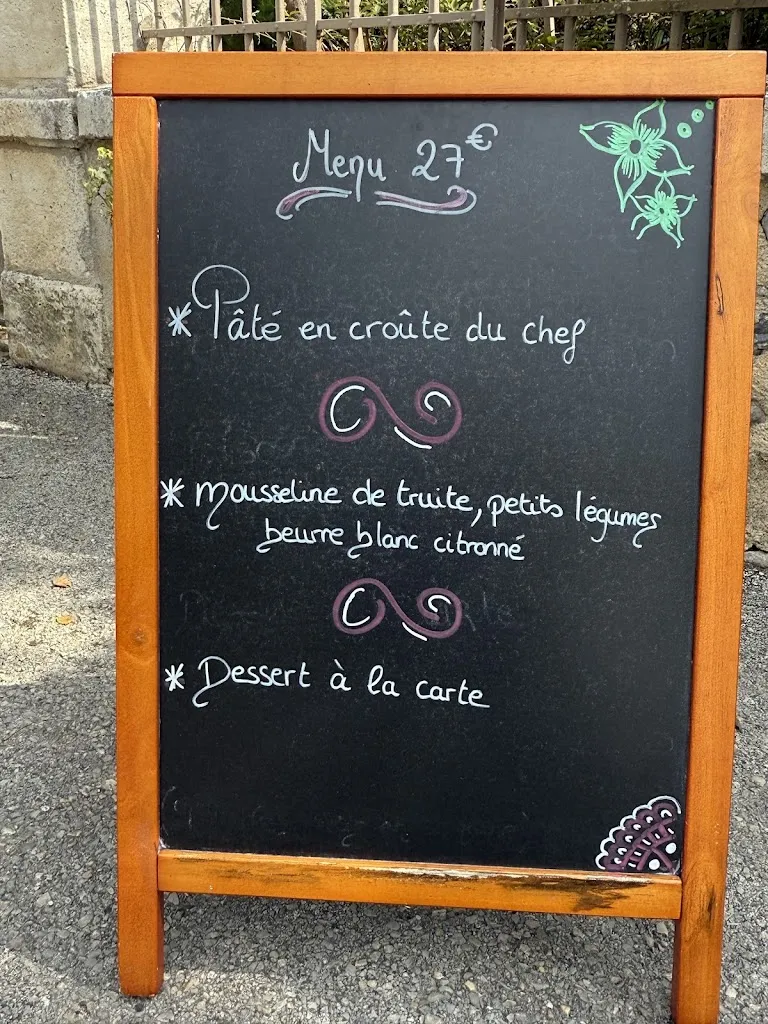 Menu 27€
* Pâté en croûte du chef
* mousseline de truite, petits légumes
beurre blanc citronné
* Dessert à la carte